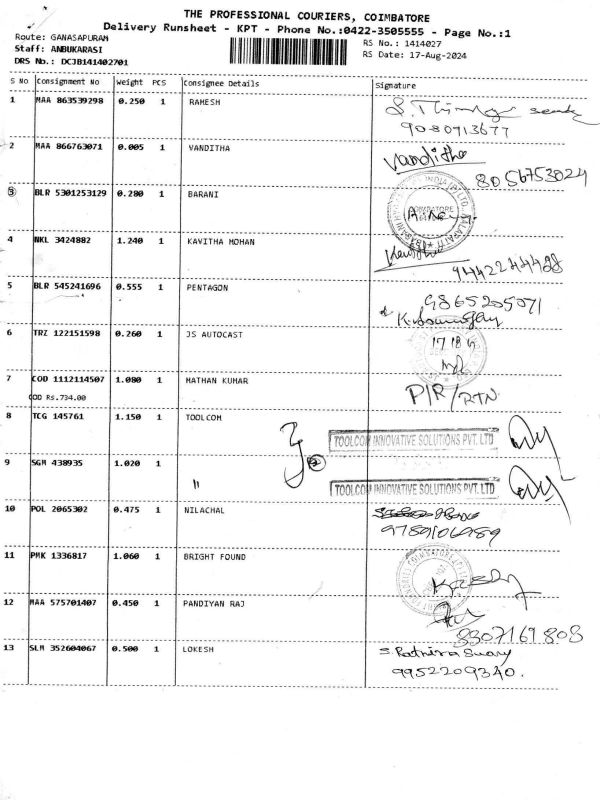 THE PROFESSIONAL COURIERS, COIMBATORE
Delivery Runsheet - KPT - Phone No.:0422-3505555 - Page No.:1
Route: GANASAPURAM
RS No.: 1414027
Staff: ANBUKARASI
RS Date: 17-Aug-2024
DRS No.: DCJB141402701
S No Consignment No Weight PCS Consignee Details Signature
1 MAA 863539298 0.250 1 RAMESH
9080713677
2 MAA 866763071 0.005 1 VANDITHA Vanditha
8056753024
3 BLR 5301253129 0.280 1 BARANI
4 NKL 3424882 1.240 1 KAVITHA MOHAN Kavitha
9442244428
5 BLR 545241696 0.555 1 PENTAGON 9865205071
6 TRZ 122151598 0.260 1 JS AUTOCAST
7 COD 1112114507 1.080 1 MATHAN KUMAR P/R/RTN
COD Rs.734.00
8 TCG 145761 1.150 1 TOOLCOM TOOLCOM INNOVATIVE SOLUTIONS PVT. LTD
9 SGM 438935 1.020 1 " TOOLCOM INNOVATIVE SOLUTIONS PVT. LTD
2
10 POL 2065302 0.475 1 NILACHAL
9789106989
11 PMK 1336817 1.060 1 BRIGHT FOUND
12 MAA 575701407 0.450 1 PANDIYAN RAJ
8307169808
13 SLM 352604067 0.500 1 LOKESH
9952209340.